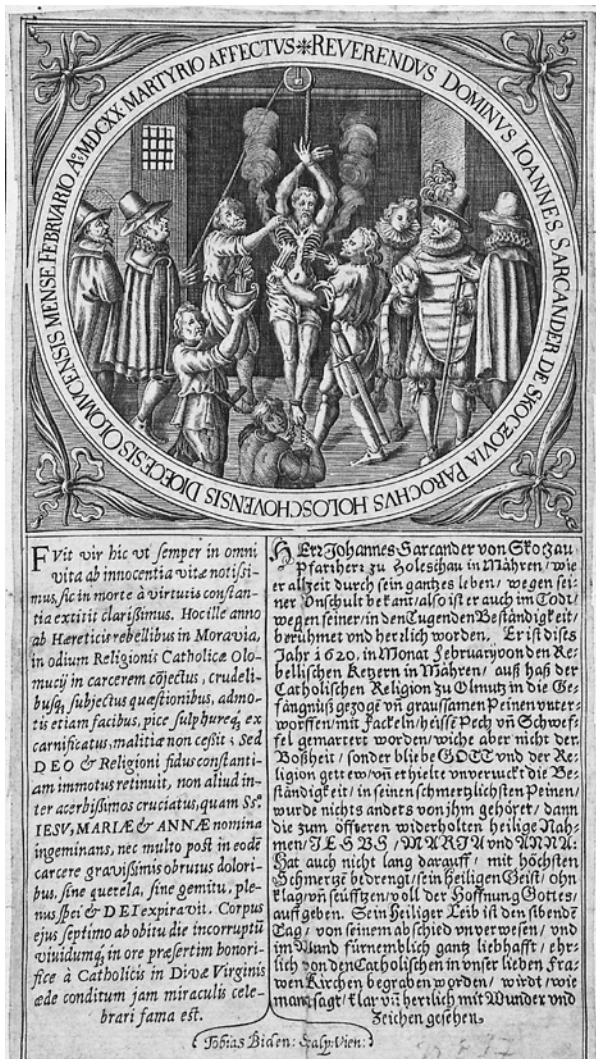 REVERENDVS DOMINVS IOANNES SARCANDER DE SKOCZOVIA PAROCHVS HOLOSCHOVENSIS DIOECESIS OLOMVCENSIS MENSE FEBRVARIO Aº. MDCXX. MARTYRIO AFFECTVS
FVit vir hic vt semper in omni
vita ab innocentia vitæ notissi-
mus, sic in morte à virtutis constan-
tia extitit clarissimus. Hoc ille anno
ab Hæreticis rebellibus in Moravia,
in odium Religionis Catholicæ Olo-
mucij in carcerem cõjectus, crudeli-
busq́; subjectus quæstionibus, admo-
tis etiam facibus, pice sulphureq́; ex
carnificatus, malitiæ non cessit; Sed
DEO & Religioni fidus constanti-
am immotus retinuit, non aliud in-
ter acerbissimos cruciatus, quam Ss.
IESV, MARIÆ & ANNÆ nomina
ingeminans, nec multo post in eodẽ
carcere gravissimis obrutus dolori-
bus, sine querela, sine gemitu, ple-
nus spei & DEI expiravit. Corpus
ejus septimo ab obitu die incorruptũ
viuidumq́; in ore præsertim honori-
fice à Catholicis in Divæ Virginis
æde conditum jam miraculis cele-
brari fama est.
HErr Johannes Sarcander von Skoczau
Pfarrherr zu Holeschau in Mähren/ wie
er allzeit durch sein gantzes leben/ wegen sei-
ner Vnschult bekant/ also ist er auch im Todt/
wegen seiner/ in den Tugenden Beständigkeit/
berühmet vnd herrlich worden. Er ist dises
Jahr 1620. in Monat February von den Re-
bellischen Ketzern in Mähren/ auß haß der
Catholischen Religion zu Olmutz in die Ge-
fängnuß gezogē vñ graussamen Peinen vnter-
worffen/ mit Fackeln/ heisse Pech vñ Schwef-
fel gemartert worden/ wiche aber nicht der
Boßheit/ sonder bliebe GOTT vnd der Re-
ligion getrew/ vñ erhielte vnverruckt die Be-
ständigkeit/ in seinen schmertzlichsten Peinen/
wurde nichts anders von jhm gehöret/ dann
die zum öffteren widerholten heilige Nah-
men/ JESVS/ MARIA vnd ANNA:
Hat auch nicht lang darauff/ mit höchsten
Schmertzē bedrengt/ sein heiligen Geist/ ohn
klag/ vñ seufftzen/ voll der Hoffnung Gottes/
auffgeben. Sein Heiliger Leib ist den sibendē
Tag/ von seinem abschied vnverwesen/ vnd
im Mund fürnemblich gantz liebhafft/ ehr-
lich von den Catholischen in vnser lieben Fra-
wen Kirchen begraben worden/ wirdt/ wie
man sagt/ klar vñ herrlich mit Wunder vnd
Zeichen gesehen.
Tobias Biden: Scalp: Vien: